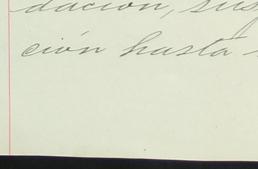 dación, sus
ción hasta